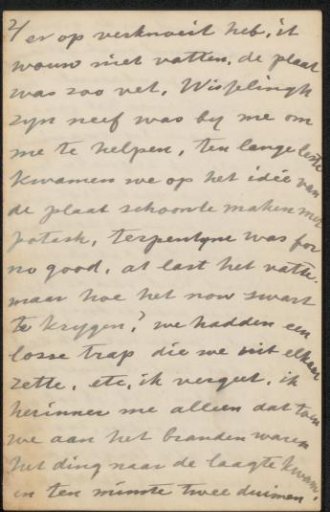 2/
er op verknoeit heb, it
wouw niet vatten, de plaat
was zoo vet, Wisselingh
zyn neef was by me om
me te helpen, ten lange leste
kwamen we op het idée van
de plaat schoonte maken met
potash, terpentyne was for
no good, at last het vatte.
maar hoe het now swart
te krygen? we hadden een
losse trap die we uit elkaar
zette, etc, ik vergeet, ik
herinner me alleen dat toen
we aan het branden waren
het ding naar de laagte kwam,
en ten minste twee duimen